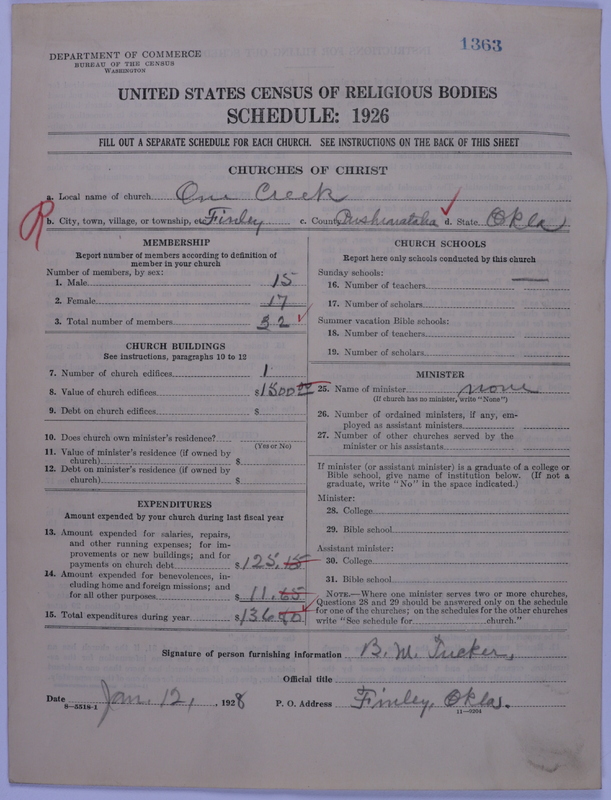 1363
DEPARTMENT OF COMMERCE
BUREAU OF THE CENSUS
WASHINGTON
UNITED STATES CENSUS OF RELIGIOUS BODIES
SCHEDULE: 1926
FILL OUT A SEPARATE SCHEDULE FOR EACH CHURCH. SEE INSTRUCTIONS ON THE BACK OF THIS SHEET
CHURCHES OF CHRIST
a. Local name of church Creek
R
b. City, town, village, or township, etc. Finley c. County Pushmataha d. State Okla
MEMBERSHIP
Report number of members according to definition of
member in your church
Number of members, by sex:
1. Male 15
2. Female 17
3. Total number of members 32
CHURCH BUILDINGS
See instructions, paragraphs 10 to 12
7. Number of church edifices 1
8. Value of church edifices $1500
9. Debt on church edifices $
10. Does church own minister's residence?
(Yes or No)
11. Value of minister's residence (if owned by
church) $
12. Debt on minister's residence (if owned by
church) $
EXPENDITURES
Amount expended by your church during last fiscal year
13. Amount expended for salaries, repairs,
and other running expenses; for im-
provements or new buildings; and for
payments on church debt $125.15
14. Amount expended for benevolences, in-
cluding home and foreign missions; and
for all other purposes $11.65
15. Total expenditures during year $136.80
CHURCH SCHOOLS
Report here only schools conducted by this church
Sunday schools:
16. Number of teachers
17. Number of scholars
Summer vacation Bible schools:
18. Number of teachers
19. Number of scholars
MINISTER
25. Name of minister none
(If church has no minister, write "None")
26. Number of ordained ministers, if any, em-
ployed as assistant ministers
27. Number of other churches served by the
minister or his assistants
If minister (or assistant minister) is a graduate of a college or
Bible school, give name of institution below. (If not a
graduate, write "No" in the space indicated.)
Minister:
28. College
29. Bible school
Assistant minister:
30. College
31. Bible school
NOTE.—Where one minister serves two or more churches,
Questions 28 and 29 should be answered only on the schedule
for one of the churches; on the schedules for the other churches
write "See schedule for church."
Signature of person furnishing information B. M. Tucker,
Official title
Date Jan. 12, , 1928 P. O. Address Finley, Okla.
8—5518-1 11—9204